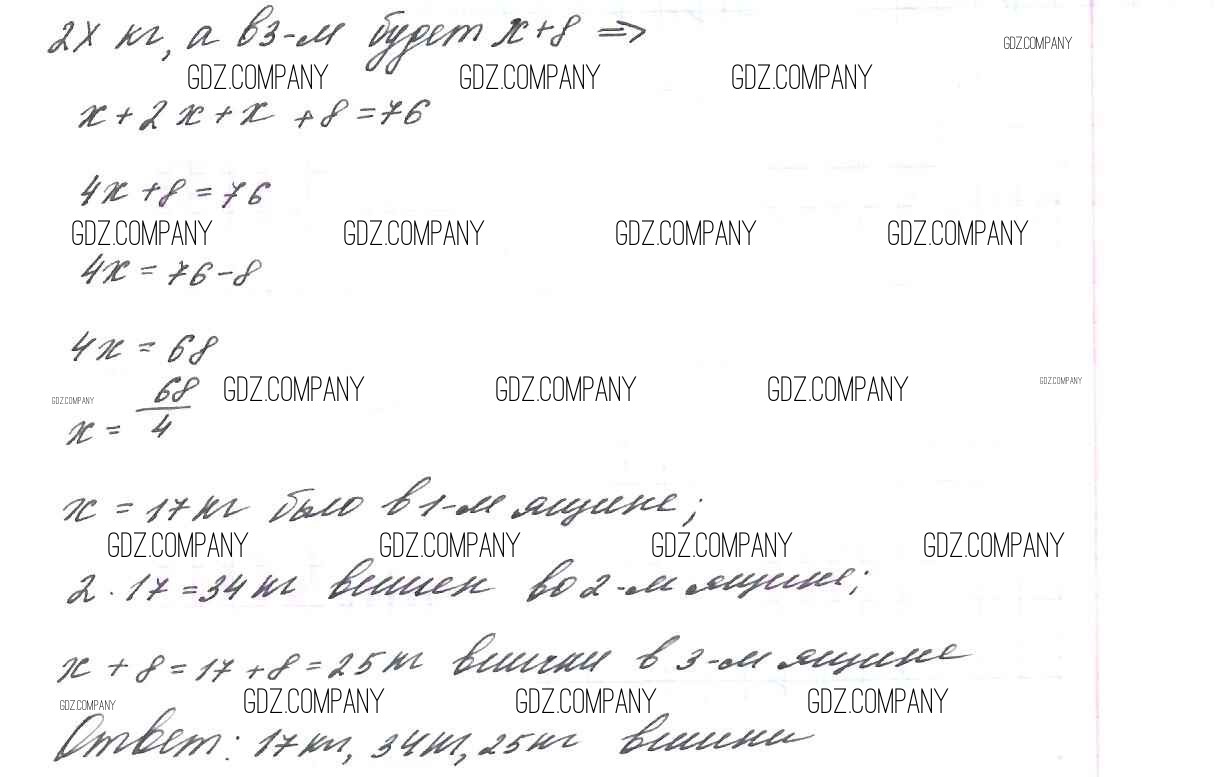 2x кг, а в 3-м будет x+8 =>
GDZ.COMPANY
GDZ.COMPANY GDZ.COMPANY GDZ.COMPANY
x+2x+x +8=76
4x+8=76
GDZ.COMPANY GDZ.COMPANY GDZ.COMPANY GDZ.COMPANY
4x=76-8
4x=68
GDZ.COMPANY GDZ.COMPANY GDZ.COMPANY GDZ.COMPANY GDZ.COMPANY
x=68/4
x=17кг было в 1-м ящике;
GDZ.COMPANY GDZ.COMPANY GDZ.COMPANY GDZ.COMPANY
2·17=34кг вишен во 2-м ящике;
x+8=17+8=25кг вишни в 3-м ящике
GDZ.COMPANY GDZ.COMPANY GDZ.COMPANY GDZ.COMPANY
Ответ: 17кг, 34кг, 25кг вишни